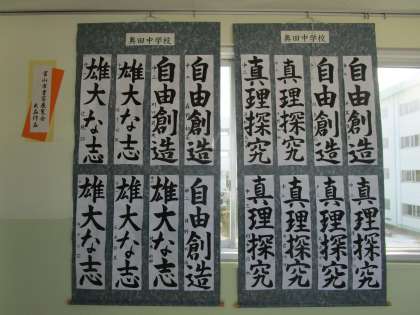 奥田中学校
自由創造
自由創造
真理探究
真理探究
真理探究
真理探究
真理探究
真理探究
奥田中学校
自由創造
自由創造
雄大な志
雄大な志
自由創造
雄大な志
雄大な志
雄大な志